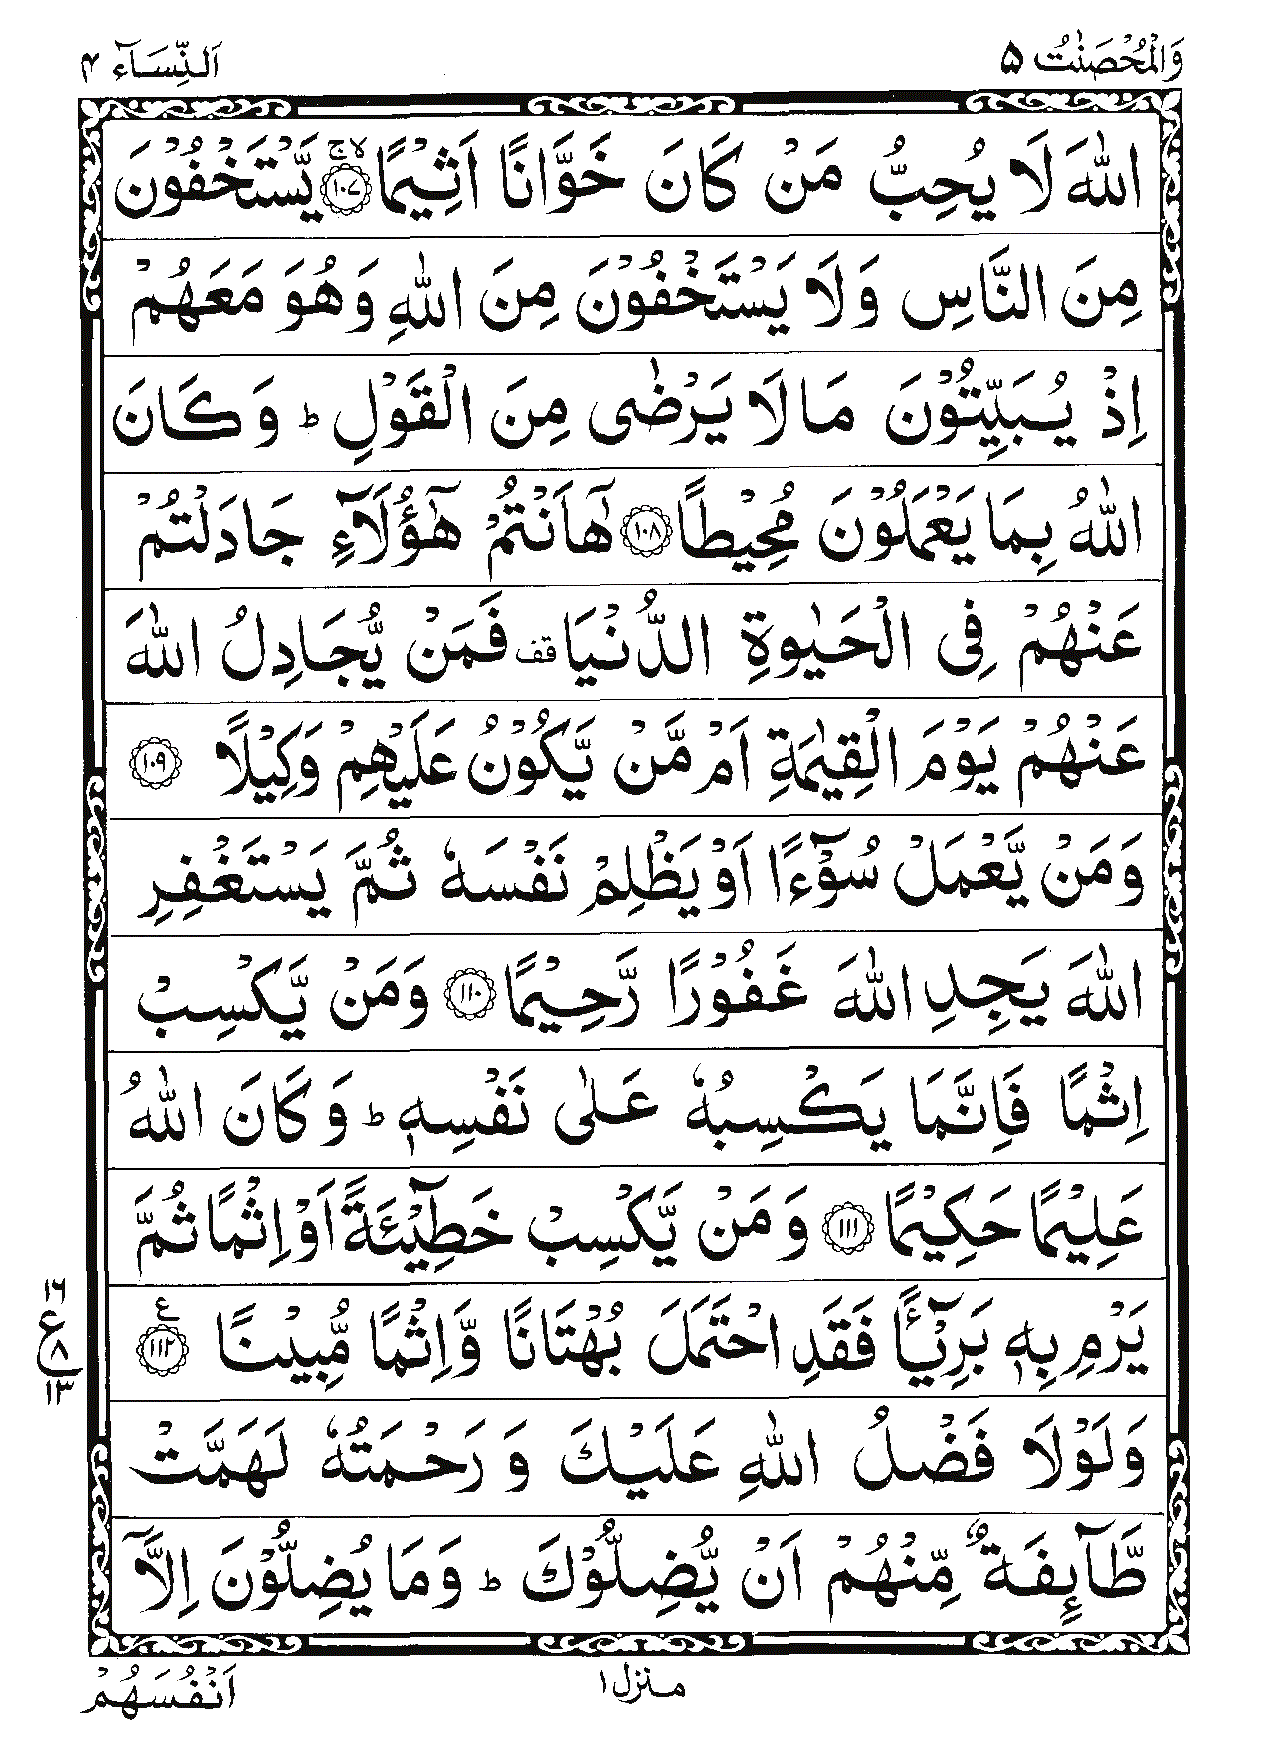 وَالْمُحْصَنٰتُ ۵ اَلنِّسَآء ۴
اللّٰهَ لَا يُحِبُّ مَنْ كَانَ خَوَّانًا اَثِيْمًا ۙۚ﴿۱۰۷﴾ يَّسْتَخْفُوْنَ
مِنَ النَّاسِ وَلَا يَسْتَخْفُوْنَ مِنَ اللّٰهِ وَهُوَ مَعَهُمْ
اِذْ يُبَيِّتُوْنَ مَا لَا يَرْضٰى مِنَ الْقَوْلِ ؕ وَكَانَ
اللّٰهُ بِمَا يَعْمَلُوْنَ مُحِيْطًا ﴿۱۰۸﴾ هٰۤاَنْتُمْ هٰٓؤُلَآءِ جَادَلْتُمْ
عَنْهُمْ فِى الْحَيٰوةِ الدُّنْيَا قف فَمَنْ يُّجَادِلُ اللّٰهَ
عَنْهُمْ يَوْمَ الْقِيٰمَةِ اَمْ مَّنْ يَّكُوْنُ عَلَيْهِمْ وَكِيْلًا ﴿۱۰۹﴾
وَمَنْ يَّعْمَلْ سُوْٓءًا اَوْ يَظْلِمْ نَفْسَهٗ ثُمَّ يَسْتَغْفِرِ
اللّٰهَ يَجِدِ اللّٰهَ غَفُوْرًا رَّحِيْمًا ﴿۱۱۰﴾ وَمَنْ يَّكْسِبْ
اِثْمًا فَاِنَّمَا يَكْسِبُهٗ عَلٰى نَفْسِهٖ ؕ وَكَانَ اللّٰهُ
عَلِيْمًا حَكِيْمًا ﴿۱۱۱﴾ وَمَنْ يَّكْسِبْ خَطِيْٓئَةً اَوْ اِثْمًا ثُمَّ
يَرْمِ بِهٖ بَرِيْٓئًا فَقَدِ احْتَمَلَ بُهْتَانًا وَّاِثْمًا مُّبِيْنًا ﴿۱۱۲﴾ ع
۱۶
ع ۸
۱۳
وَلَوْلَا فَضْلُ اللّٰهِ عَلَيْكَ وَرَحْمَتُهٗ لَهَمَّتْ
طَّآئِفَةٌ مِّنْهُمْ اَنْ يُّضِلُّوْكَ ؕ وَمَا يُضِلُّوْنَ اِلَّاۤ
منزل ۱
اَنْفُسَهُمْ